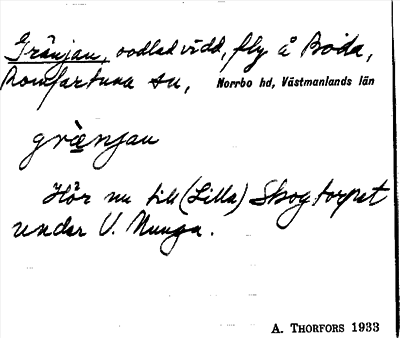 Gränjan, oodlad vidd, fly å Boda,
Romfartuna sn, Norrbo hd, Västmanlands län
grὲnjan
Hör nu till (Lilla) Skogtorpet
under V. Nunga.
A. THORFORS 1933